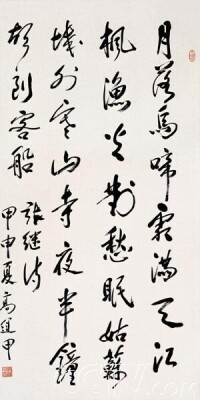 月落烏啼霜滿天江
楓漁火對愁眠姑蘇
城外寒山寺夜半鐘
聲到客船
張继诗
甲申夏高